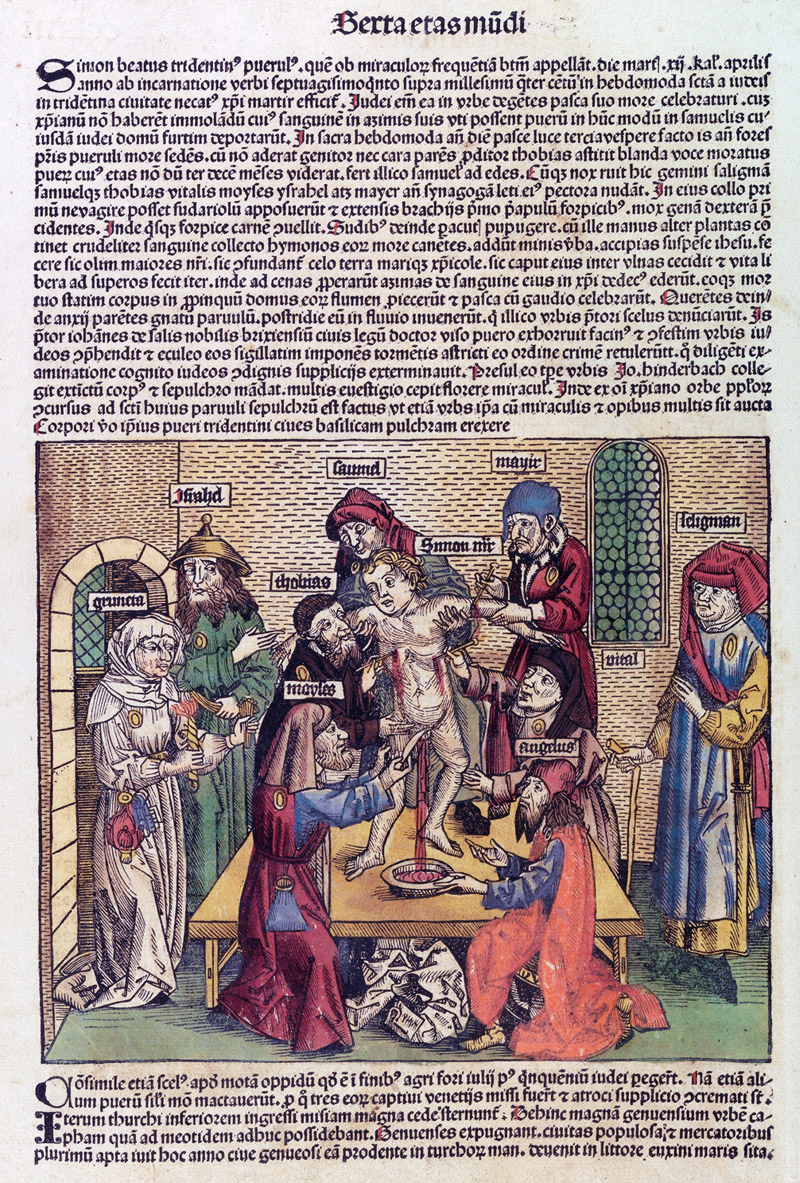 Sexta etas mūdi
Simon beatus tridentinꝰ puerulꝰ. quē ob miraculoꝝ frequētiā btm̄ appellāt. die martꝭ. xij. kal'. aprilis
anno ab incarnatione verbi septuagisimoq̇nto supra millesimū q̇ter cētū in hebdomoda sctā a iudeis
in tridētina ciuitate necatꝰ xp̄i martir efficit̃. Judei em̄ ea in vrbe degētes pasca suo more celebraturi. cuꝫ
xp̄ianū nō haberēt immolādū cuiꝰ sanguinē in azimis suis vti possent puerū in hūc modū in samuelis cu-
iusdā iudei domū furtim deportarūt. In sacra hebdomoda añ diē pasce luce tercia vespere facto is añ fores
pr̄is pueruli more sedēs. cū nō aderat genitor nec cara parēs ꝓditor thobias astitit blanda voce moratus
pueꝝ cuiꝰ etas nō dū ter decē mēses viderat. fert illico samuel' ad edes. Cūqꝫ nox ruit hic gemini saligmā
samuelqꝫ thobias vitalis moyses ysrahel atqꝫ mayer añ synagogā leti eiꝰ pectora nudāt. In eius collo pri
mū ne vagire posset sudariolū apposuerūt ⁊ extensis brachijs p̄mo p̄apulū forpicibꝰ. mox genā dexterā p̄
cidentes. Inde q̇sqꝫ forpice carnē ꝯuellit. Sudibꝰ deinde p̄acutꝭ pupugere. cū ille manus alter plantas cō
tinet crudeliter sanguine collecto hymonos eoꝝ more canētes. addūt minis v̄ba. accipias suspēse ihesu. fe
cere sic olim maiores nr̄i. sic ꝯfundant̃ celo terra mariqꝫ xp̄icole. sic caput eius inter vlnas cecidit ⁊ vita li
bera ad superos fecit iter. inde ad cenas ꝓperarūt azimas de sanguine eius in xp̄i dedecꝰ ederūt. eoqꝫ mor
tuo statim corpus in ꝓpinquū domus eoꝝ flumen ꝓiecerūt ⁊ pasca cū gaudio celebrarūt. Querētes dein
de anxij parētes gnatū paruulū. postridie eū in fluuio inuenerūt. q̇ illico vrbis p̄tori scelus denūciarūt. Is
p̄tor iohānes de salis nobilis brixiensiū ciuis legū doctor viso puero exhorruit facinꝰ ⁊ ꝯfestim vrbis iu
deos ꝯp̄hendit ⁊ eculeo eos sigillatim imponēs tormētis astricti eo ordine crimē retulerūt. q̇ diligēti ex-
aminatione cognito iudeos ꝯdignis supplicijs exterminauit. Presul eo tp̄e vrbis Jo. hinderbach colle-
git extīctū corpꝰ ⁊ sepulchro mādat. multis euestigio cepit florere miracul'. Inde ex oī xp̄iano orbe ppl'oꝝ
ꝯcursus ad sctī huius paruuli sepulchrū est factus vt etiā vrbs ip̄a cū miraculis ⁊ opibus multis sit aucta
Corpori v̄o ip̄ius pueri tridentini ciues basilicam pulchram erexere
samuel
mayir
Israhel
seligman
Simon mr̄
thobias
gruneta
vital
moyses
angelus
Cōsimile etiā scelꝰ. apd̓ motā oppidū qd̓ ē ī finibꝰ agri fori iulij pꝰ q̇nquēniū iudei ꝑegert̃. Nā etiā ali-
um puerū sil'i mō mactauerūt. ꝓ q̇ tres eoꝝ captiui venetijs missi fuert̃ ⁊ atroci supplicio ꝯcremati st̄.
Iterum thurchi inferiorem ingressi misiam magna cede sternunt̃. Behinc magnā genuensium vrbē ca-
pham quā ad meotidem adhuc possidebant. Genuenses expugnant. ciuitas populosa ⁊ mercatoribus
plurimū apta iuit hoc anno ciue genueosi eā prodente in turchoꝝ man. deuenit in littore euxini maris sita.